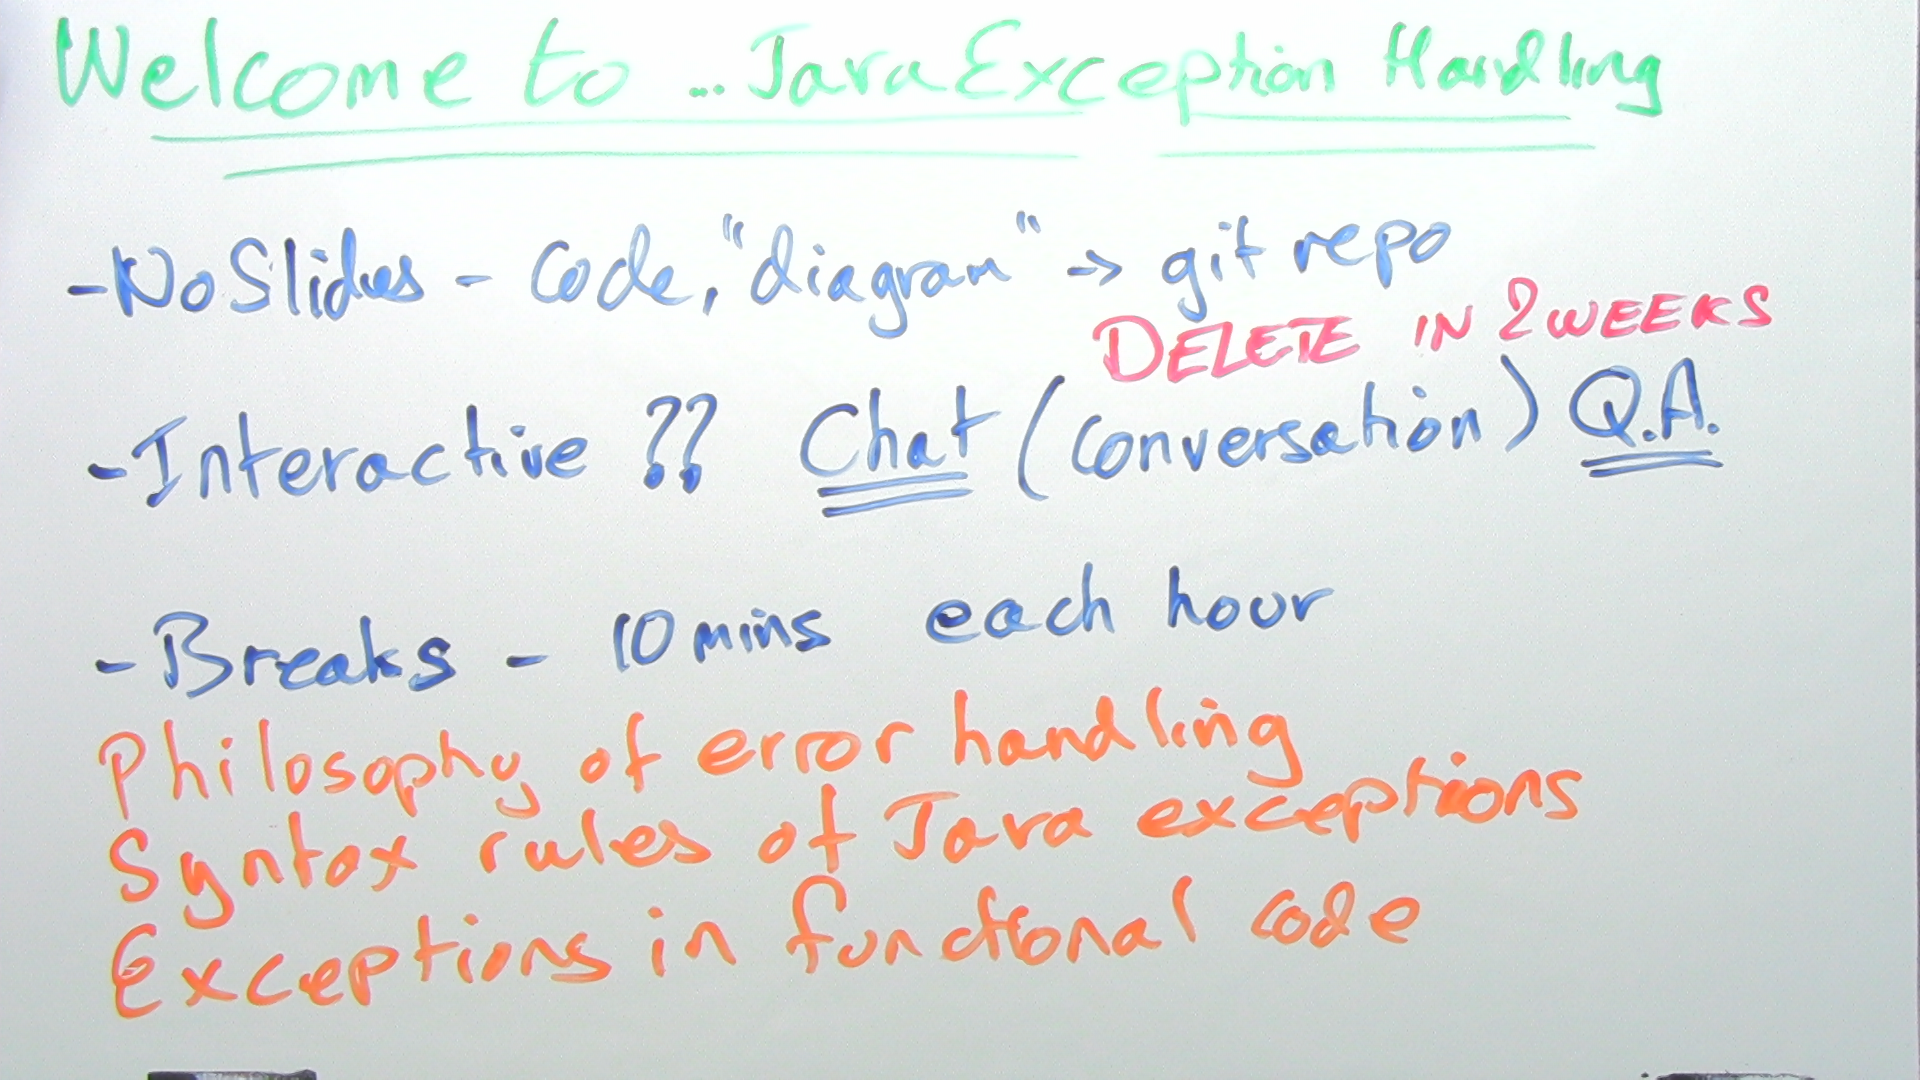 Welcome to ... Java Exception Handling
- No Slides - Code, "diagram" -> git repo
DELETE IN 2 WEEKS
- Interactive ?? Chat (conversation) Q.A.
- Breaks - 10 mins each hour
Philosophy of error handling
Syntax rules of Java exceptions
Exceptions in functional code